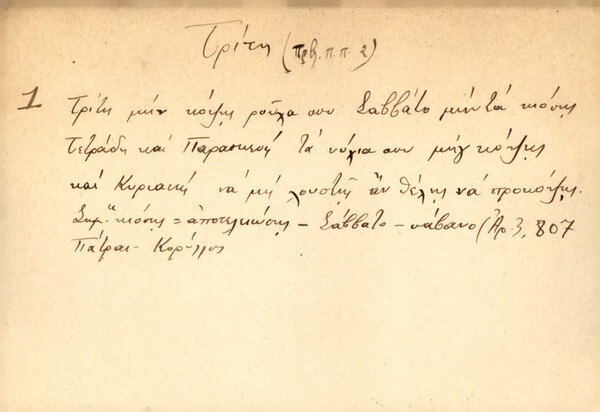 Τρίτη (πρβ. π.π. 2)
1 Τρίτη μὴν κόψῃς ροῦχα σου Σαββάτο μὴν τὰ κιώσῃς
Τετράδη καὶ Παρασκευὴ τὰ νύχια σου μὴν κόψῃς
καὶ Κυριακὴ νὰ μὴ λουστῇς ἂν θέλῃς νὰ προκόψῃς.
Σημ. κιώσῃς = ἀποτελειώσῃς – Σάββατο – σάβανο (Ἀρ. 3, 807
Πάτραι – Κορύλλος